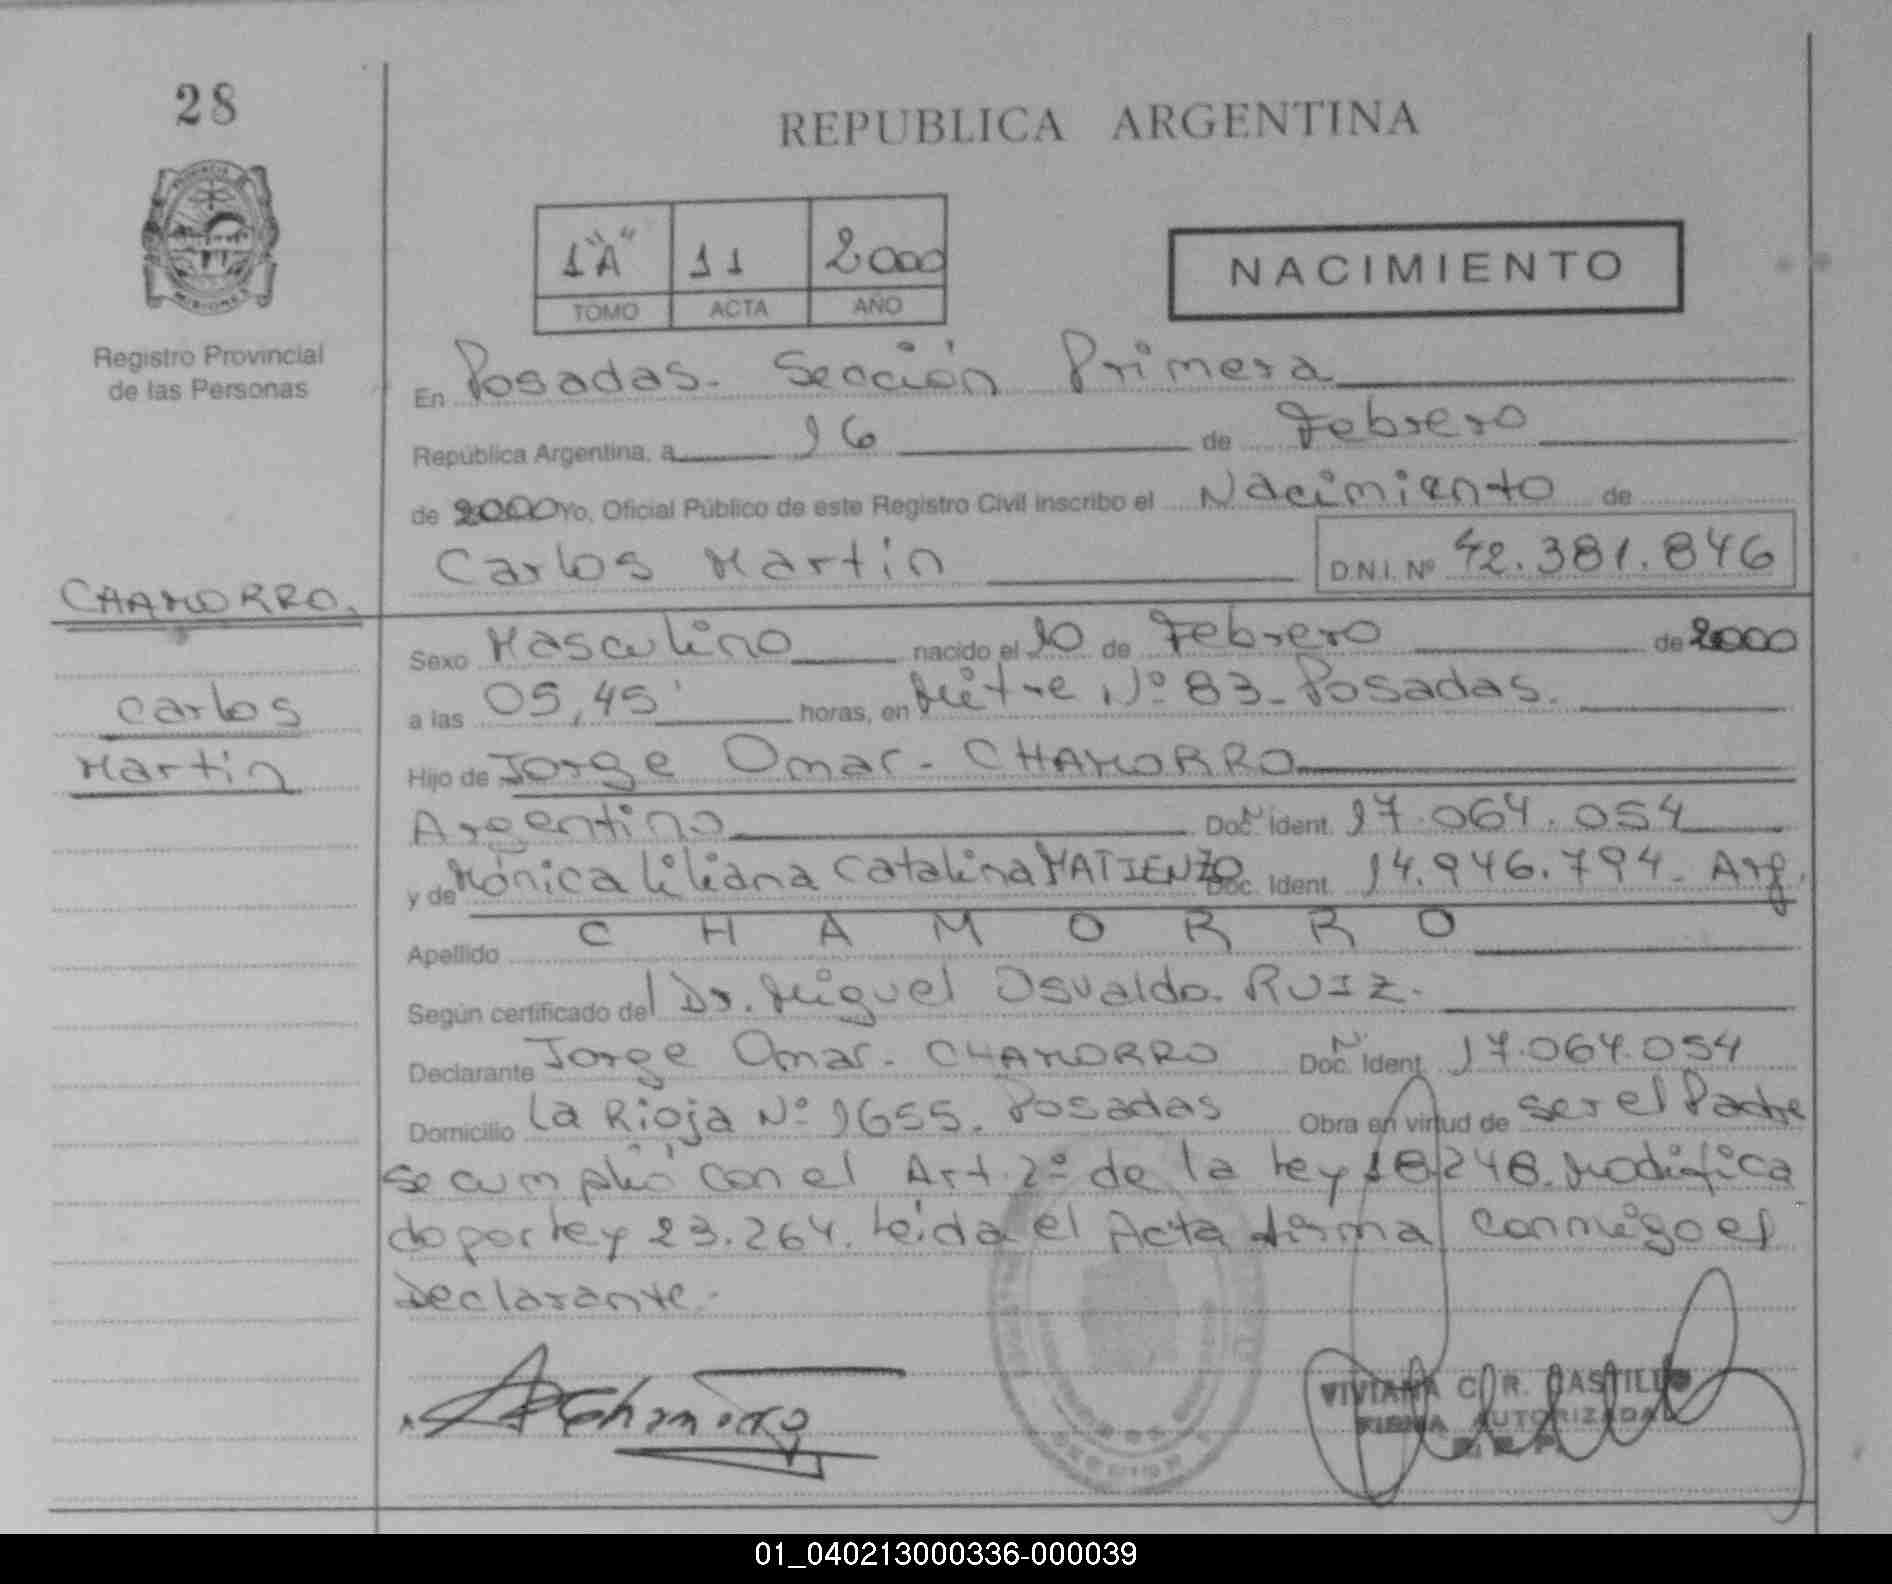 28
REPUBLICA ARGENTINA
1"A" 11 2000
TOMO ACTA AÑO
NACIMIENTO
Registro Provincial
de las Personas
En Posadas. Sección Primera
República Argentina, a 16 de Febrero
de 2000 Yo, Oficial Público de este Registro Civil inscribo el Nacimiento de
Carlos Martin D.N.I. Nº 42.381.846
CHAMORRO.
Carlos
Martin
Sexo Masculino nacido el 10 de Febrero de 2000
a las 05,45' horas, en Mitre Nº 83. Posadas.
Hijo de Jorge Omar. CHAMORRO
Argentino Doc. Ident. 17.064.054
y de Mónica Liliana Catalina MATIENZO Doc. Ident. 14.946.794. Arg.
Apellido C H A M O R R O
Según certificado del Dr. Miguel Osvaldo. RUIZ.
Declarante Jorge Omar. CHAMORRO Doc. Ident. 17.064.054
Domicilio La Rioja Nº 1655. Posadas Obra en virtud de ser el Padre
se cumplió con el Art. 2º de la Ley 18.248. Modifica
do por Ley 23.264. Leída el Acta firma conmigo el
Declarante.
Chamorro
VIVIANA C. R. CASTILLO
FIRMA AUTORIZADA
01_040213000336-000039